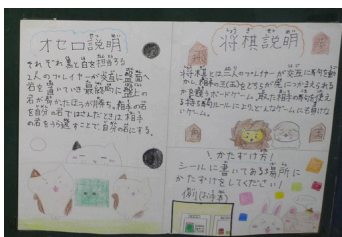 オセロ説明
それぞれ黒と白を担当する
2人のプレイヤーが交互に盤面へ
石を置いていき、最終的に盤上の
石が多かったほうが勝ち。相手の石
を自分の石ではさんだときは相手
の石をうら返すことで、自分の石にする。
将棋説明
将棋とは二人のプレイヤーが交互に駒を動
かし、相手の王(玉)をどちらが先につかまえられる
かを競うボードゲーム。取った相手の駒を使え
る持ち駒ルールにより、どんなゲームにも負けな
いゲーム。
かたずけ方!
シールに書いてある場所に
かたずけをしてください!